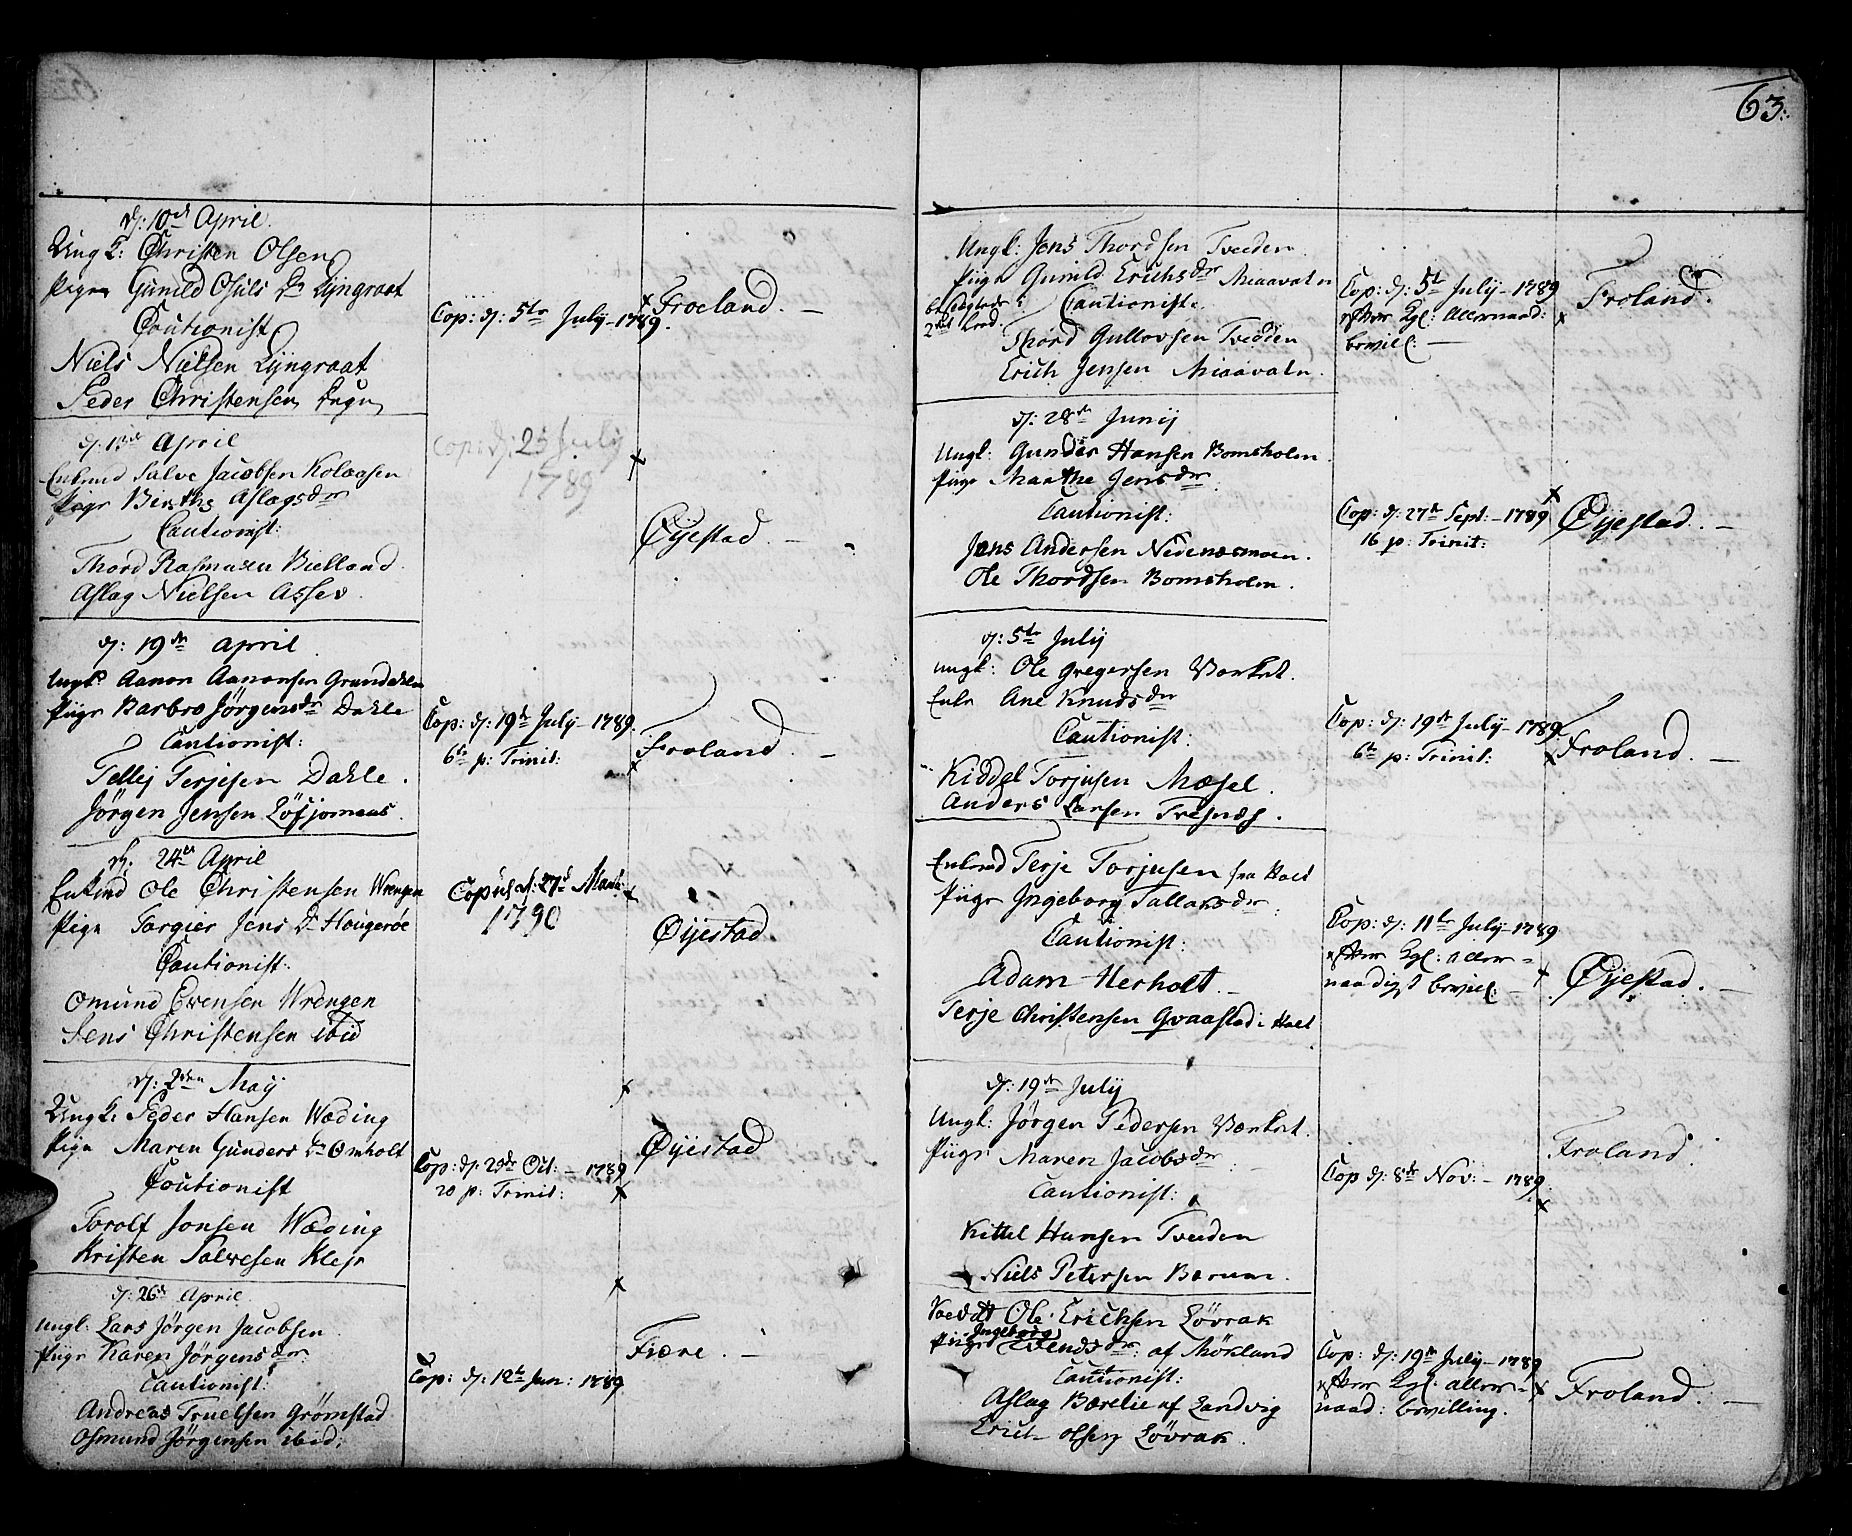 d: 10de April.
Ungk: Christen Olsen
Pigen Gunild Osuls Dr Lyngraat
Coutionist
Niels Nielsen Lyngraat
Peder Christensen
Cop: d: 5te July - 1789.
Froeland. —
d: 13de April
Enkmd Salve Jacobsen Kolaasen
Pige Birthe Aslagsdr
Cautionist:
Thord Rasmusen Bielland.
Aslag Nielsen Assev.
Cop: d: 25 July
1789
Øyestad. —
d: 19de April.
Ungk: Aanon Aanonsen Grundahlen
Piige Barbro Jörgensdr Dahle
Cautionist:
Tellef Terjesen Dahle.
Jörgen Jensen Löfjomaas.
Cop: d: 19de July - 1789.
6te p: Trinit:
Froland. —
d: 24de April
Enkmd Ole Christensen Wrengen
Pige Torgier Jens Dr Hougeröe
Cautionist:
Omund Evensen Wrengen
Jens Christensen ibid
Copul: d: 27d Marti
1790
Øyestad.
d: 2den May
Ungk: Peder Hansen Wæding
Pige Maren Gunders Dr Omholt
Coutionist
Torolf Jonsen Wæding
Kristen Salvesen Klep
Cop: d: 29de Oct: - 1789
20 p: Trinit:
Øyestad
d: 26de April
Ungl: Lars Jörgen Jacobsen
Piige Karen Jörgensdr:
Cautionist:
Andreas Truelsen Grömstad
Osmund Jörgensen ibid:
Cop: d: 12te Jun: 1789
Fiære. —
63.
Ungl: Jens Thordsen Tveeden
Piige Gunild Erichsdr Miaavatn
beslægtede i
2det Leed.
Cautionist:
Thord Gullovsen Tvedden
Erich Jensen Miaavatn.
Cop: d: 5te July - 1789
efter Kgl: Allernaad:
bevill: —
Froland.
d: 28de Junij
Ungl: Gunder Hansen Bomsholm.
Piige Marthe Jensdr.
Cautionist:
Jens Andersen Nedenesmoen.
Ole Thordsen Bomsholm.
Cop: d: 27de Sept: - 1789
16 p: Trinit:
Øyestad. —
d: 5te July
Ungl: Ole Gregersen Værket.
Enke Ane Knudsdr
Cautionist:
Kiddel Torjusen Mæsel.
Anders Larsen Tresnæs.
Cop: d: 19de July - 1789
6te p: Trinit:
Froland. —
Enkemd Terje Torjusen fra Holt
Piige Ingeborg Tallaksdr.
Cautionist:
Adam Herholt. —
Terje Christensen Qvaastad i Holt
Cop: d: 11te July - 1789
efter Kgl: aller=
naadigst bevill: —
Øyestad. —
d: 19de July
Ungl: Jörgen Pedersen Værket.
Piige Maren Jacobsdr.
Cautionist:
Kittel Hansen Tveeden
Niels Petersen Bærum.
Cop d: 8de Nov: - 1789.
Froland.
Ole Erichsen Lövrak
Ingeborg
Piige Evendsdr: af Mökland
Cautionist:
Aslag Bærelie af Landvig
Erich Olsen Lövrak.
Cop: d: 19de July - 1789
efter Kgl: aller=
naad: bevilling.
Froland. —